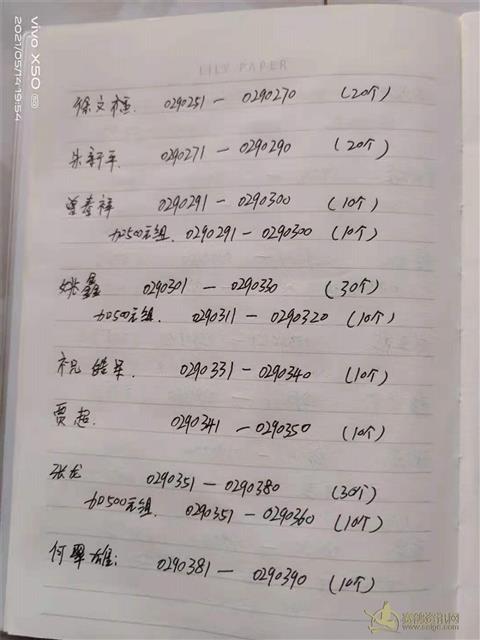 LILY PAPER
徐文桂. 0290251 — 0290270 (20个)
朱新平. 0290271 — 0290290 (20个)
曾春祥 0290291 — 0290300 (10个)
加500元组. 0290291 — 0290300 (10个)
姚鑫 0290301 — 0290330 (30个)
加500元组. 0290311 — 0290320 (10个)
祝 皓 0290331 — 0290340 (10个)
贾超. 0290341 — 0290350 (10个)
张龙 0290351 — 0290380 (30个)
加500元组. 0290351 — 0290360 (10个)
何翠雄: 0290381 — 0290390 (10个)
vivo X50
2021/05/14 19:54
赛鸽资讯网